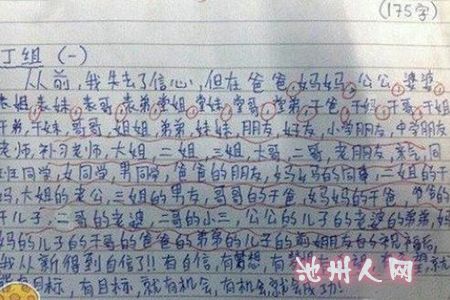 (175字)
丁组 (一)
从前,我失去了信心,但在爸爸,妈妈,公公,婆婆,
表姐,表妹,表哥,表弟,堂姐,堂妹,堂哥,堂弟,干爸,干妈,干哥,干姐
干弟,干妹,哥哥,姐姐,弟弟,妹妹,朋友,好友,小学朋友,中学朋友
老师,补习老师,大姐,二姐,三姐,大哥,二哥,老朋友,同
班同学,女同学,男同学,爸爸的朋友,妈妈的同事,二姐的干
妈,大姐的老公,三姐的男友,哥哥的干爸,妈妈的干爸,爸爸的
干儿子,二哥的老婆,二哥的小三,公公的儿子的老婆的弟弟,妈
妈的儿子的干哥的爸爸的弟弟的儿子的前姐朋友的祝福后,
我从新得到自信了!!有自信,有梦想,有
有目标,有目标,就有机会,有机会就会成功!
池州人网